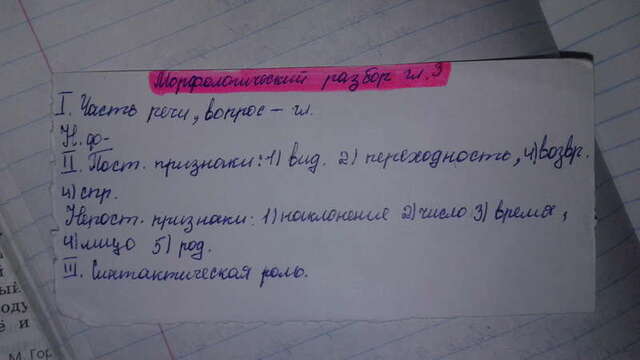 Морфологический разбор гл. 3
I. Часть речи, вопрос – гл.
II. Пост. признаки: 1) вид. 2) переходность, 4) возвр.
4) спр.
Непост. признаки: 1) наклонение 2) число 3) время,
4) лицо 5) род.
III. Синтактическая роль.